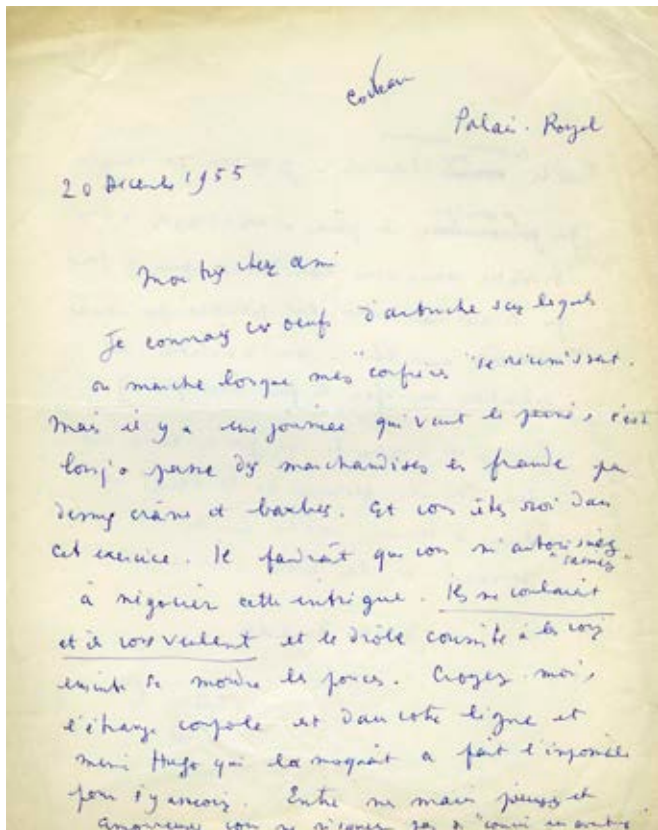 Cocteau
Palais-Royal
20 Décembre 1955
Mon très cher ami
Je connais ces oeufs d'autruche sur lesquels
on marche lorsque mes "confrères" se réunissent.
Mais il y a une journée qui vaut la peine, c'est
lorsqu'on passe des marchandises en fraude par
dessus crânes et barbes. Et vous êtes roi dans
cet exercice. Il faudrait que vous m'autorisiez
à négocier cette intrigue. Ils me voulaient
et ils vous veulent et le drôle consiste à les voir
ensuite se mordre les pouces. Croyez-moi,
l'étrange coupole est dans votre ligne et
même Hugo qui la moquait a fait l'impossible
pour s'y asseoir. Entre nos mains pieuses et
amoureuses vous ne risquez pas de